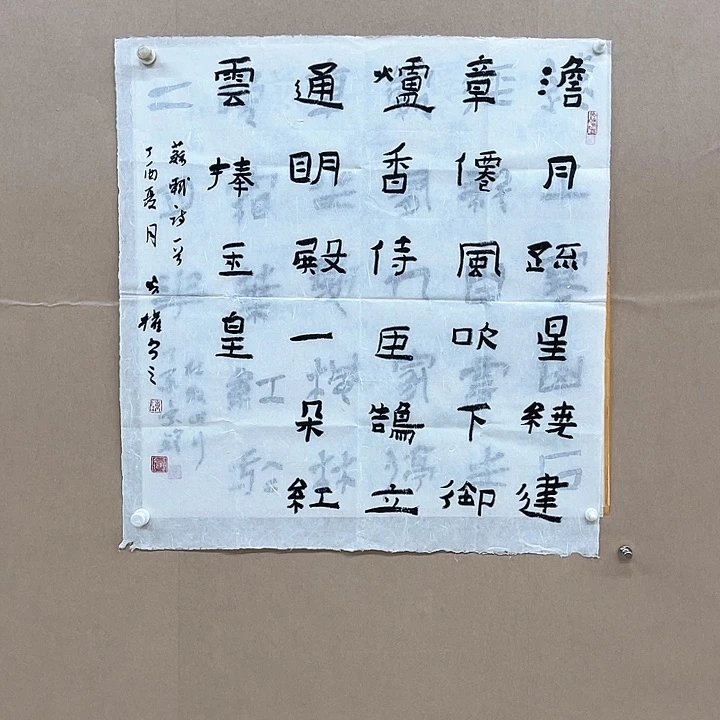 澹月疏星繞建
章僊風吹下御
爐香侍臣鵠立
通明殿一朵紅
雲捧玉皇
蘇軾詩一首
丁酉夏月 權書之